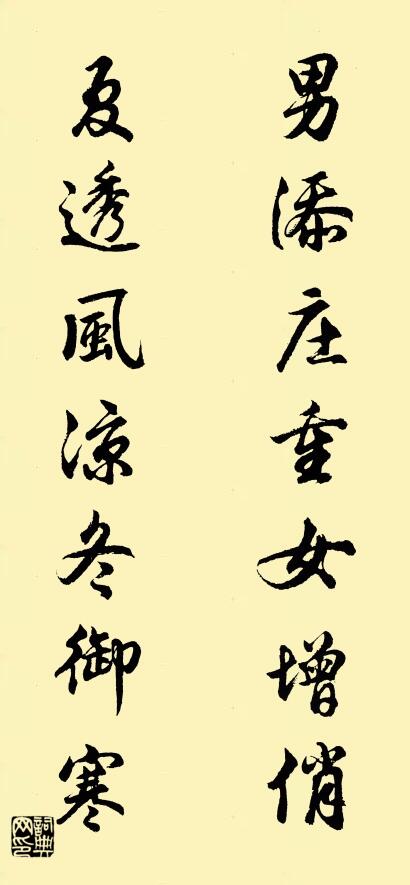 男添庄重女增俏
夏透風凉冬御寒
詞典网印